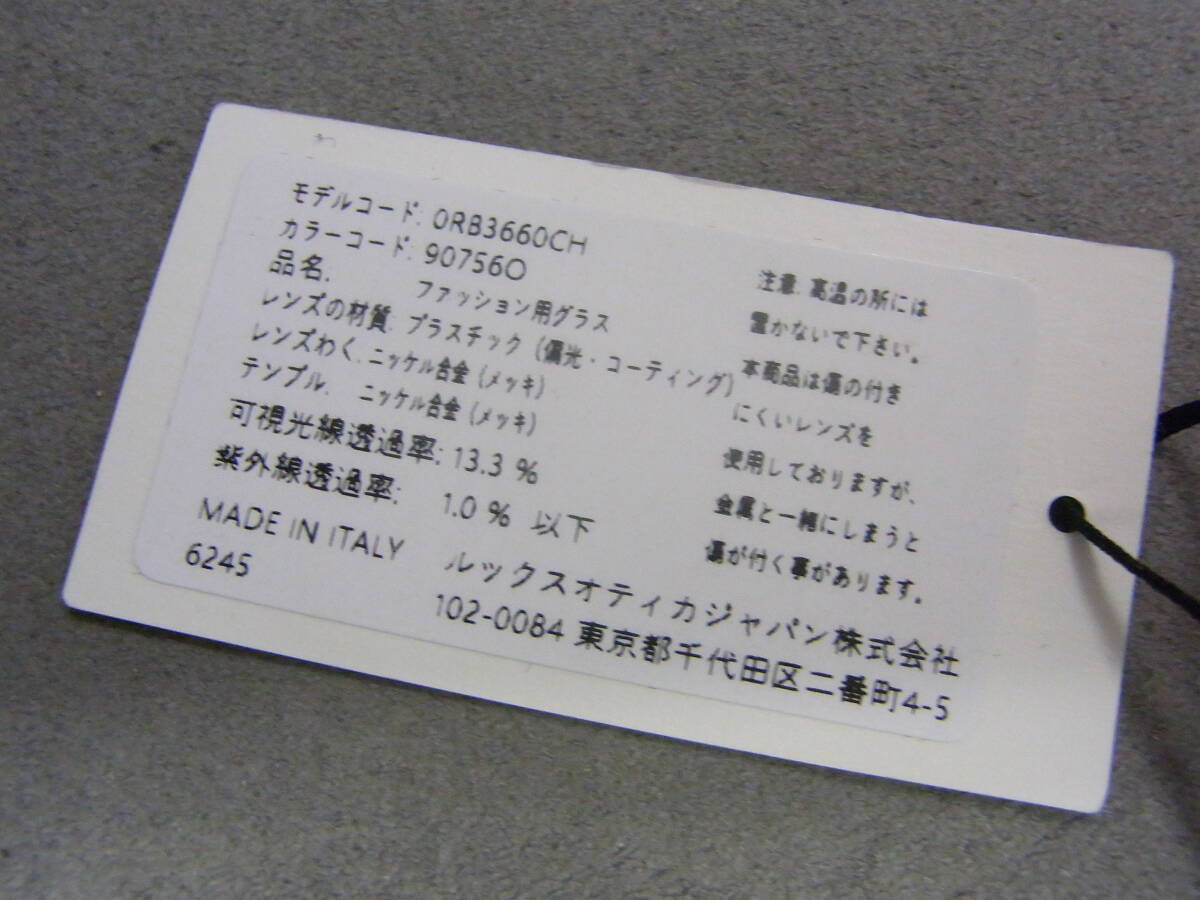 モデルコード: 0RB3660CH
カラーコード: 90756O
品名. ファッション用グラス
レンズの材質: プラスチック (偏光・コーティング)
レンズわく. ニッケル合金 (メッキ)
テンプル. ニッケル合金 (メッキ)
可視光線透過率: 13.3 %
紫外線透過率: 1.0 % 以下
MADE IN ITALY
6245
注意: 高温の所には
置かないで下さい。
本商品は傷の付き
にくいレンズを
使用しておりますが、
金属と一緒にしまうと
傷が付く事があります。
ルックスオティカジャパン株式会社
102-0084 東京都千代田区二番町4-5